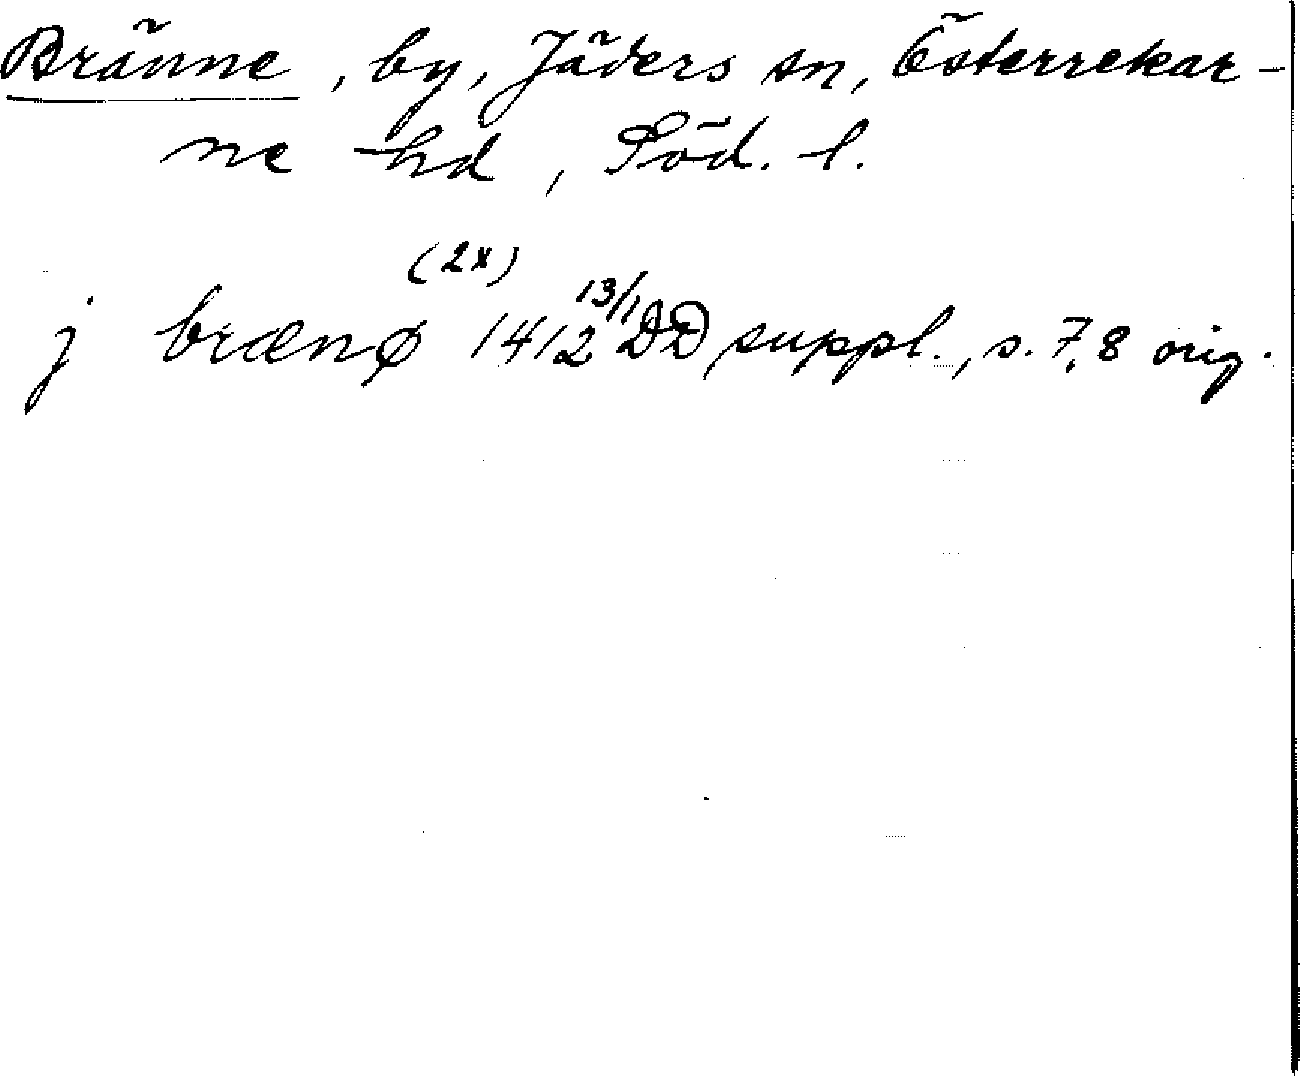 Bränne, by, Jäders sn, Österrekar-
ne hd, Söd. l.
(2x)
j brænø 1412 13/1 DD suppl., s. 7, 8 orig.